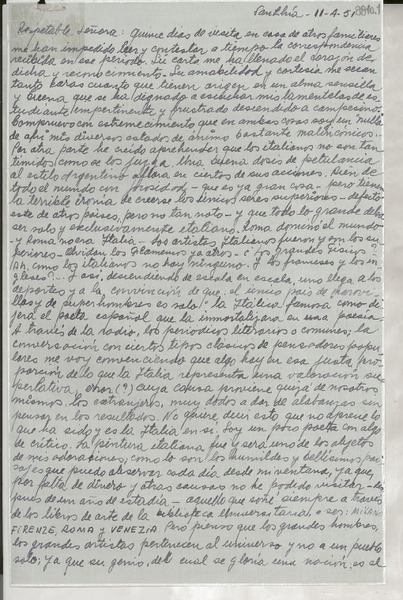 Santhià - 11-4-51
Respetable Señora: Quince días de visita en casa de otros familiares
me han impedido leer y contestar a tiempo la correspondencia
recibida en ese período. Su carta me ha llenado el corazón de
dicha y reconocimiento. Su amabilidad y cortesía me sean
tanto caras cuanto que tienen origen en un alma sensible
y buena que se ha dignado a escuchar mis lamentelas de es-
tudiante impertinente y frustrado descendido a campesino.
Compruevo con estremecimiento que en ambas cosas soy un nulle
de ahí mis diversos estados de ánimo bastante malincónicos.
Por otra parte he creído aprehender que los italianos no son tan
tímidos como se los juzga. Una buena dosis de petulancia
al estilo argentino aflora en ciertos de sus acciones. Dicen de
todo el mundo con - que es ya gran cosa - pero tienen
la terrible ironía de creerse los únicos seres superiores - defecto
este de otros países, pero no tan noto - y que todo lo grande deba
ser solo y exclusivamente italiano. Roma dominó el mundo
y Roma no era Italia. Los artistas italianos fueron y son los su-
periores - olvidan los Flamencos ya otros - ¿Los grandes físicos?
Ah, como los italianos no hay ninguno. ¿Y los franceses y los in-
gleses?... y así, descendiendo de escala en escala, uno llega a los
deportes y a la convicción de que el único país de maravi-
llas y de superhombres es solo: "la Itálica famosa" como di-
jera el poeta español que la inmortalizara en una poesía.
A través de la radio, los periódicos literarios o comunes, la
conversación con ciertos tipos clásicos de pensadores popu-
lares me voy convenciendo que algo hay en esa justa pro-
porción de lo que la Italia representa una valoración su-
pertativa. error (?) cuya causa proviene quizá de nosotros
mismos. Los extranjeros, muy dados a dar de alabanzas sin
pensar en los resultados. No quiere decir esto que no aprecie lo
que ha sido y es la Italia en sí. Soy un poco poeta con algo
de crítico. La pintura italiana fue y será uno de los objetos
de mis adoraciones, como lo son los humildes y bellísimos pai-
sajes que puedo observar cada día, desde mi ventana, ya que,
por falta de dinero y otras causas no he podido visitar - des-
pués de un año de estadía - aquello que soñé siempre a través
de los libros de arte de la biblioteca universitaria: o sea: MILANO
FIRENZE, ROMA y VENEZIA. Pero pienso que los grandes hombres,
los grandes artistas pertenecen al universo y no a un pueblo
solo; ya que su genio, del cual se gloría una nación, es al